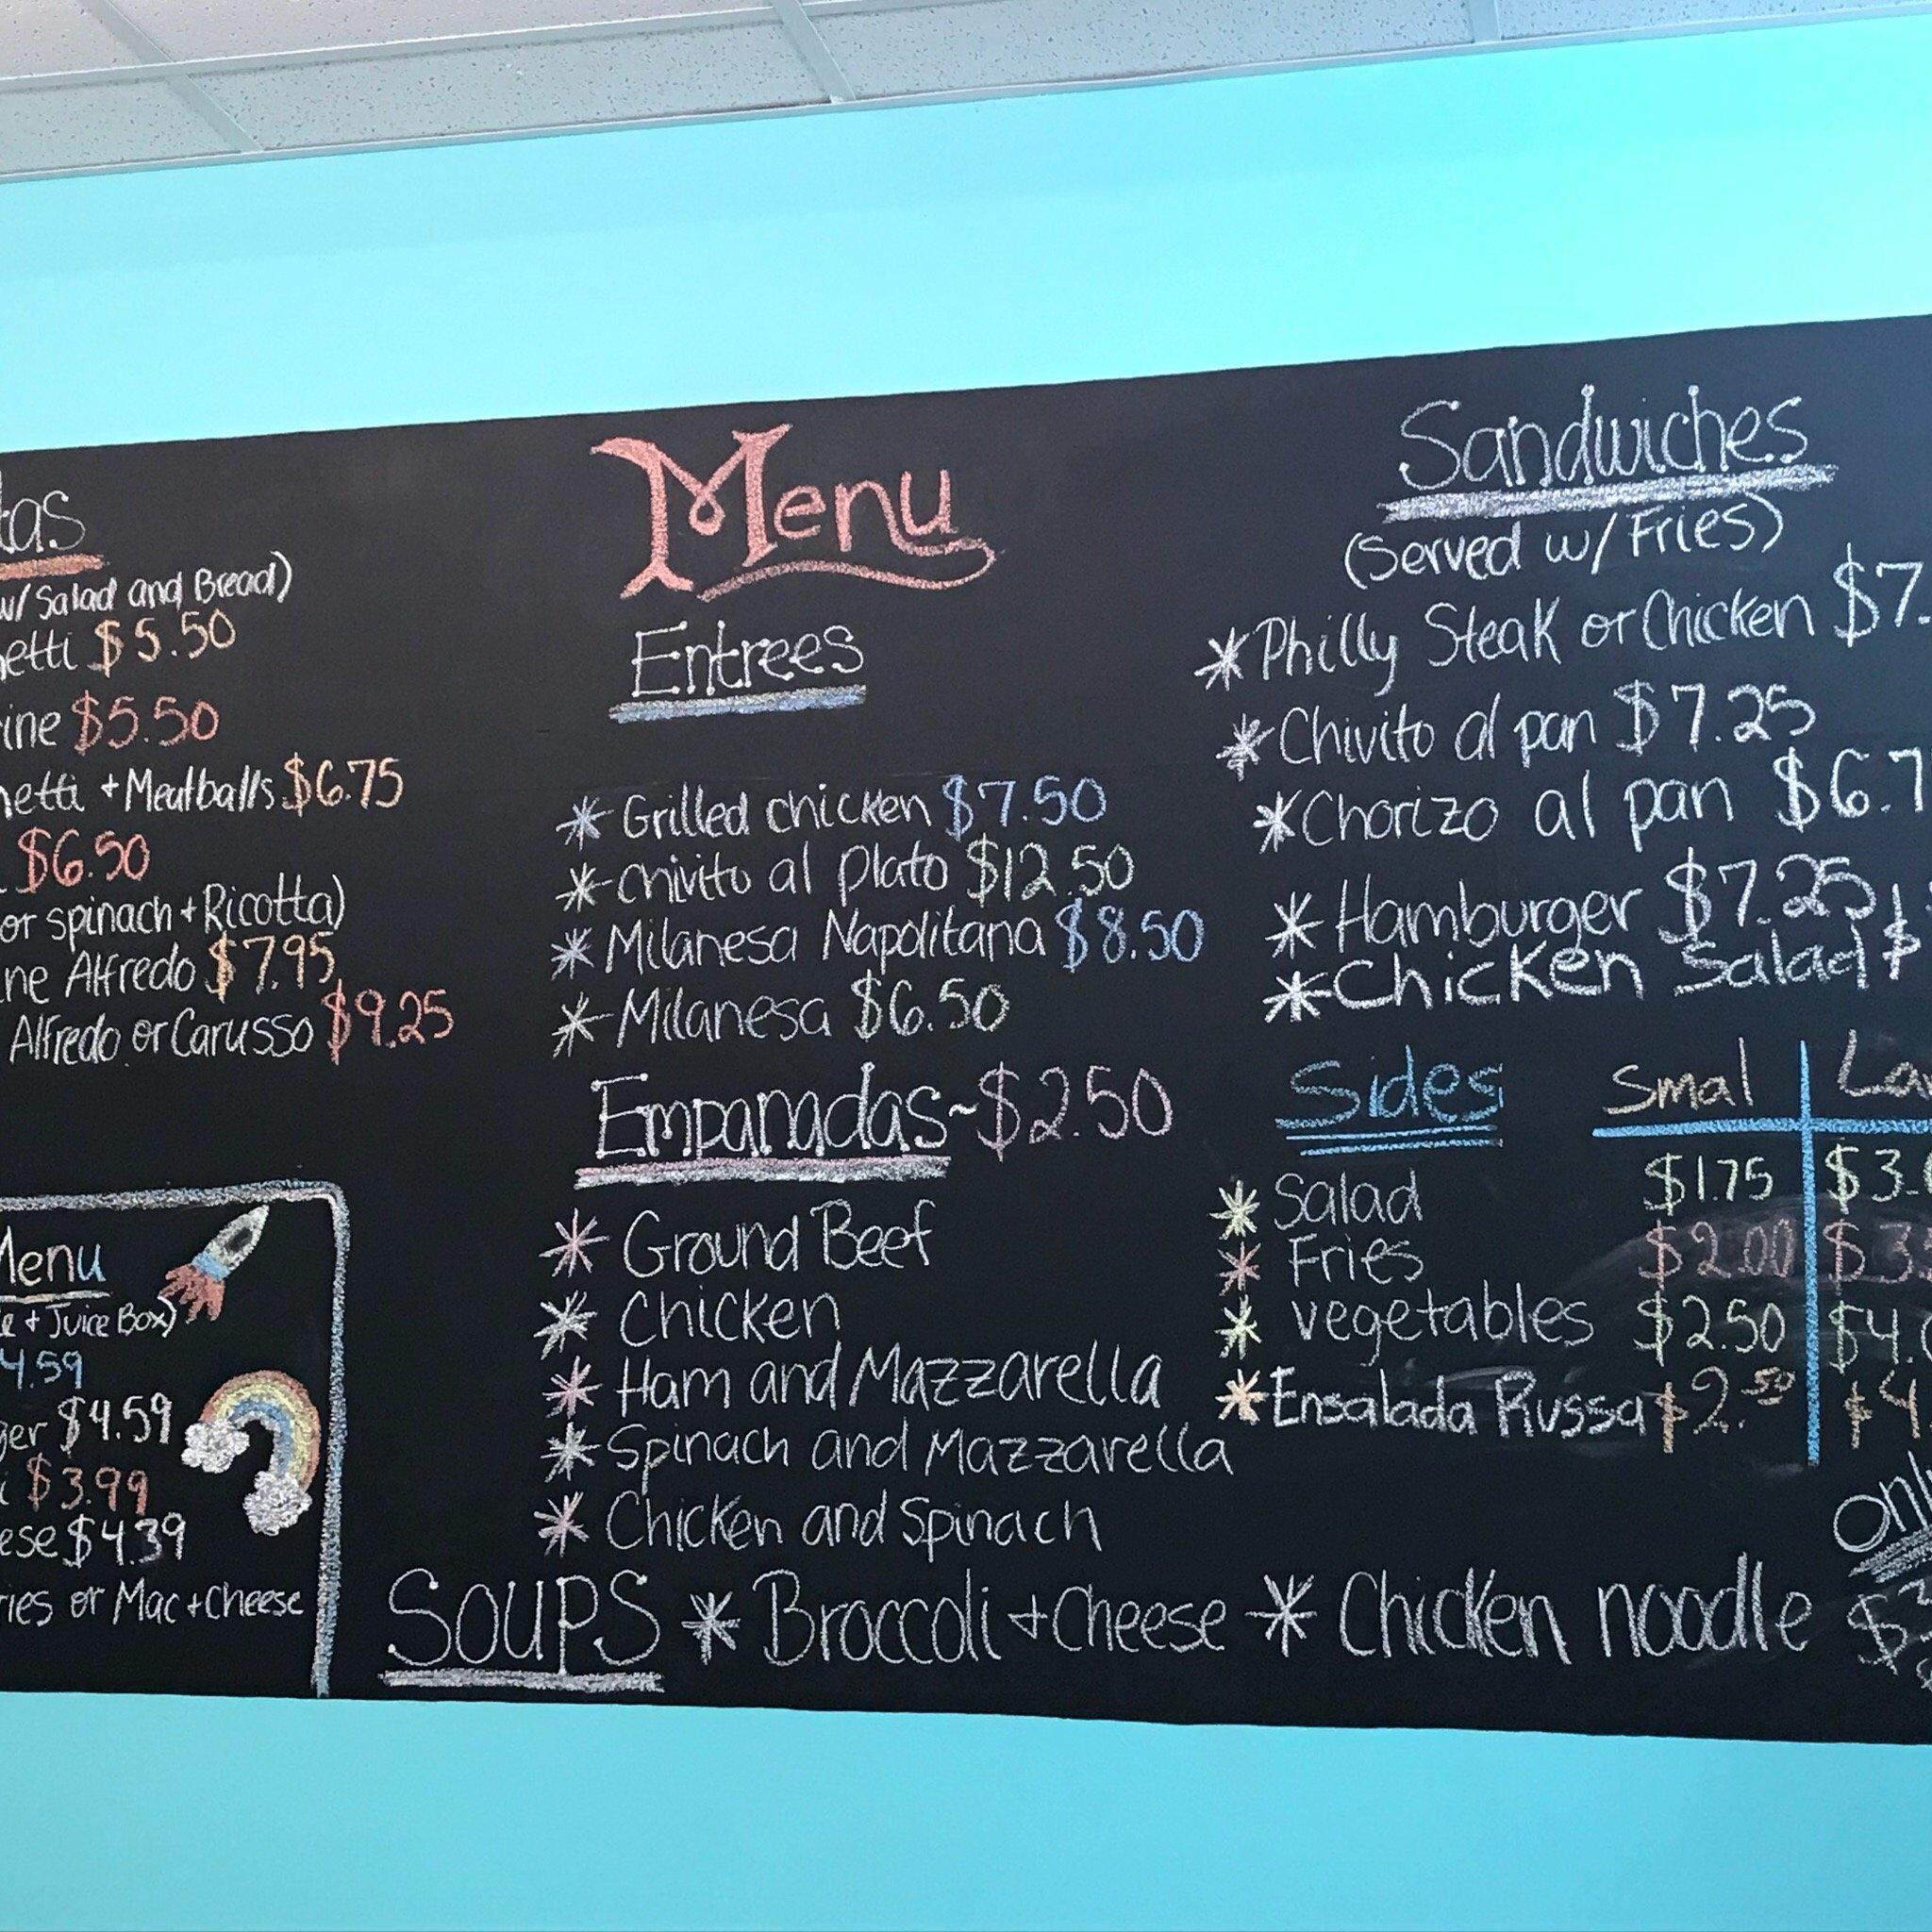 Menu
w/ Salad and Bread)
$5.50
$5.50
+ Meatballs $6.75
$6.50
or spinach + Ricotta)
Alfredo $7.95
Alfredo or Carusso $9.25
Menu
+ Juice Box)
4.59
$4.59
$3.99
$4.39
or Mac + Cheese
Entrees
* Grilled chicken $7.50
* Chivito al Plato $12.50
* Milanesa Napolitana $8.50
* Milanesa $6.50
Empanadas ~ $2.50
* Ground Beef
* Chicken
* Ham and Mazzarella
* Spinach and Mazzarella
* Chicken and Spinach
Sandwiches
(Served w/ Fries)
* Philly Steak or Chicken $7.
* Chivito al pan $7.25
* Chorizo al pan $6.7
* Hamburger $7.25
* Chicken Salad $
Sides Smal
* Salad $1.75 $3.
* Fries $2.00 $3
* vegetables $2.50 $4.
* Ensalada Russa $2.50 $4
SOUPS * Broccoli + Cheese * Chicken noodle